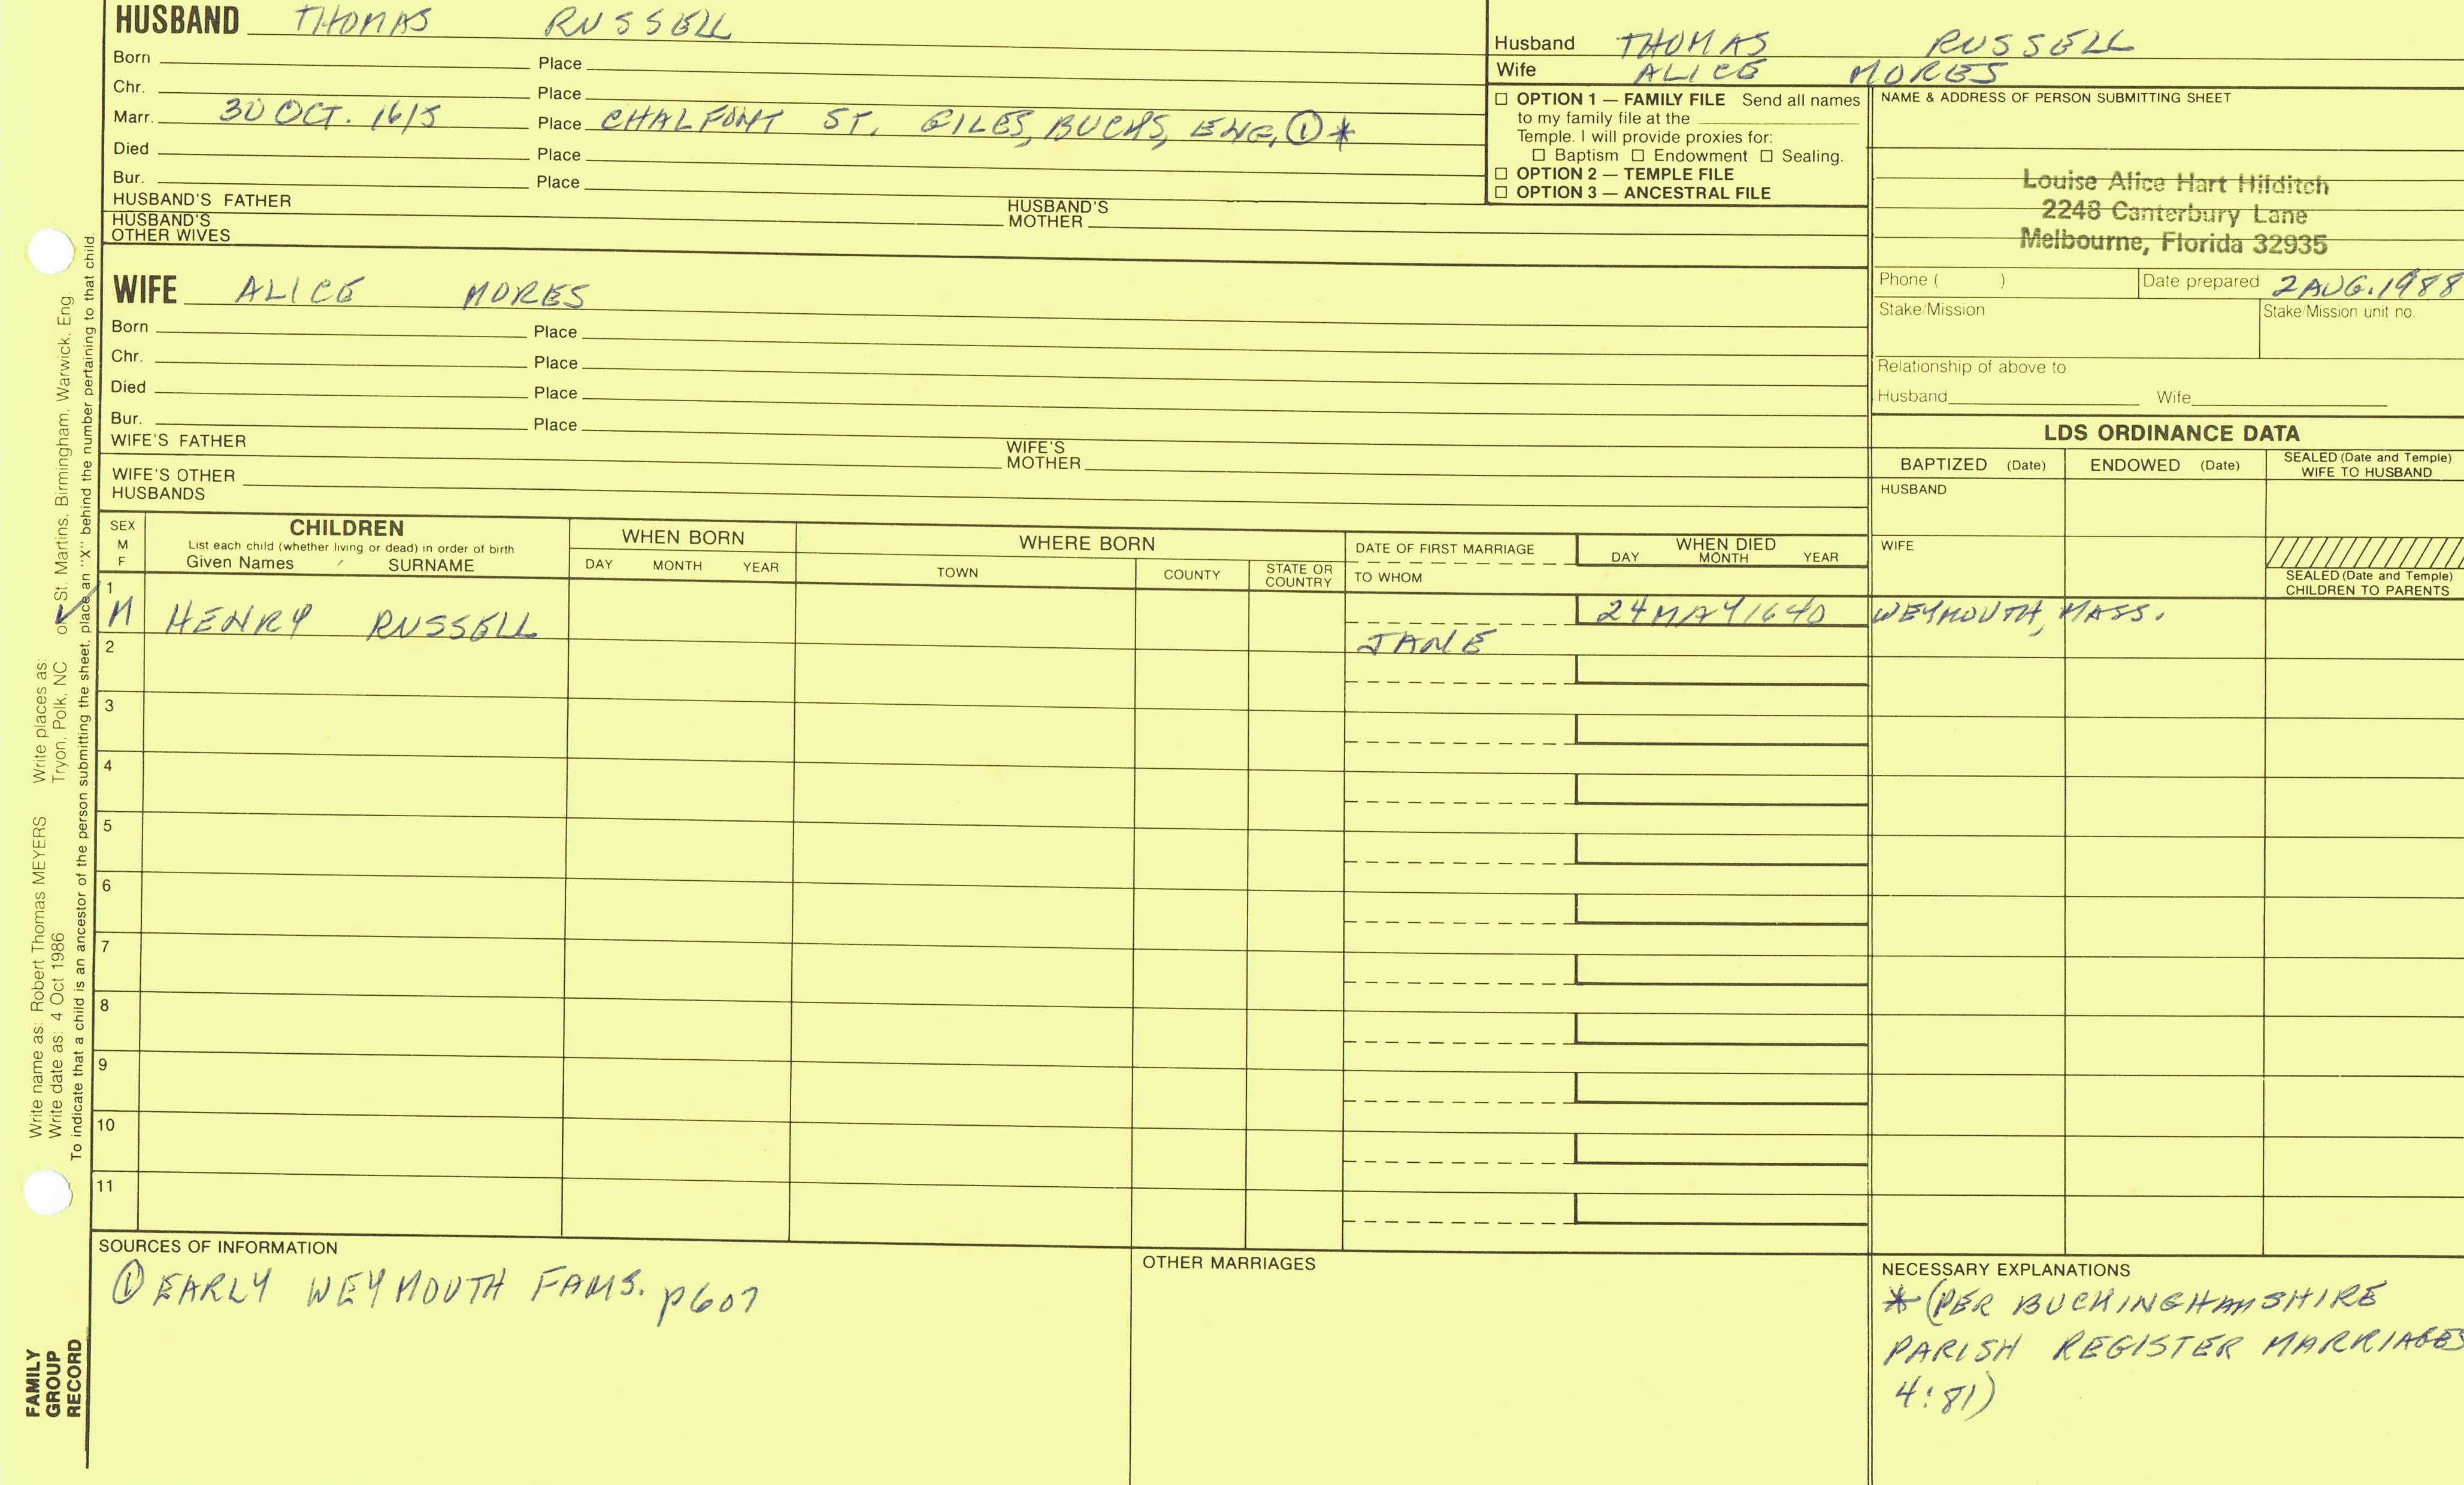 HUSBAND THOMAS RUSSELL
Born Place
Chr. Place
Marr. 30 OCT. 1615 Place CHALFONT ST. GILES, BUCKS, ENG, ① *
Died Place
Bur. Place
HUSBAND'S FATHER HUSBAND'S MOTHER
HUSBAND'S OTHER WIVES
Husband THOMAS RUSSELL
Wife ALICE MORES
☐ OPTION 1 — FAMILY FILE Send all names
to my family file at the
Temple. I will provide proxies for:
☐ Baptism ☐ Endowment ☐ Sealing.
☐ OPTION 2 — TEMPLE FILE
☐ OPTION 3 — ANCESTRAL FILE
NAME & ADDRESS OF PERSON SUBMITTING SHEET
Louise Alice Hart Hilditch
2248 Canterbury Lane
Melbourne, Florida 32935
Phone ( ) Date prepared 2 AUG. 1988
Stake/Mission Stake/Mission unit no.
Relationship of above to
Husband Wife
WIFE ALICE MORES
Born Place
Chr. Place
Died Place
Bur. Place
WIFE'S FATHER WIFE'S MOTHER
WIFE'S OTHER HUSBANDS
LDS ORDINANCE DATA
BAPTIZED (Date) ENDOWED (Date) SEALED (Date and Temple) WIFE TO HUSBAND
HUSBAND
WIFE
SEALED (Date and Temple) CHILDREN TO PARENTS
SEX M F
CHILDREN
List each child (whether living or dead) in order of birth
Given Names SURNAME
WHEN BORN
DAY MONTH YEAR
WHERE BORN
TOWN COUNTY STATE OR COUNTRY
DATE OF FIRST MARRIAGE
TO WHOM
WHEN DIED
DAY MONTH YEAR
1 ✓ M HENRY RUSSELL JANE 24 MAY 1640 WEYMOUTH, MASS.
2
3
4
5
6
7
8
9
10
11
SOURCES OF INFORMATION
① EARLY WEYMOUTH FAMS. p607
OTHER MARRIAGES
NECESSARY EXPLANATIONS
* (PER BUCKINGHAMSHIRE
PARISH REGISTER MARRIAGES
4:81)
Write name as: Robert Thomas MEYERS Write places as:
Write date as: 4 Oct 1986 Tryon, Polk, NC or St. Martins, Birmingham, Warwick, Eng.
To indicate that a child is an ancestor of the person submitting the sheet, place an "X" behind the number pertaining to that child.
FAMILY
GROUP
RECORD